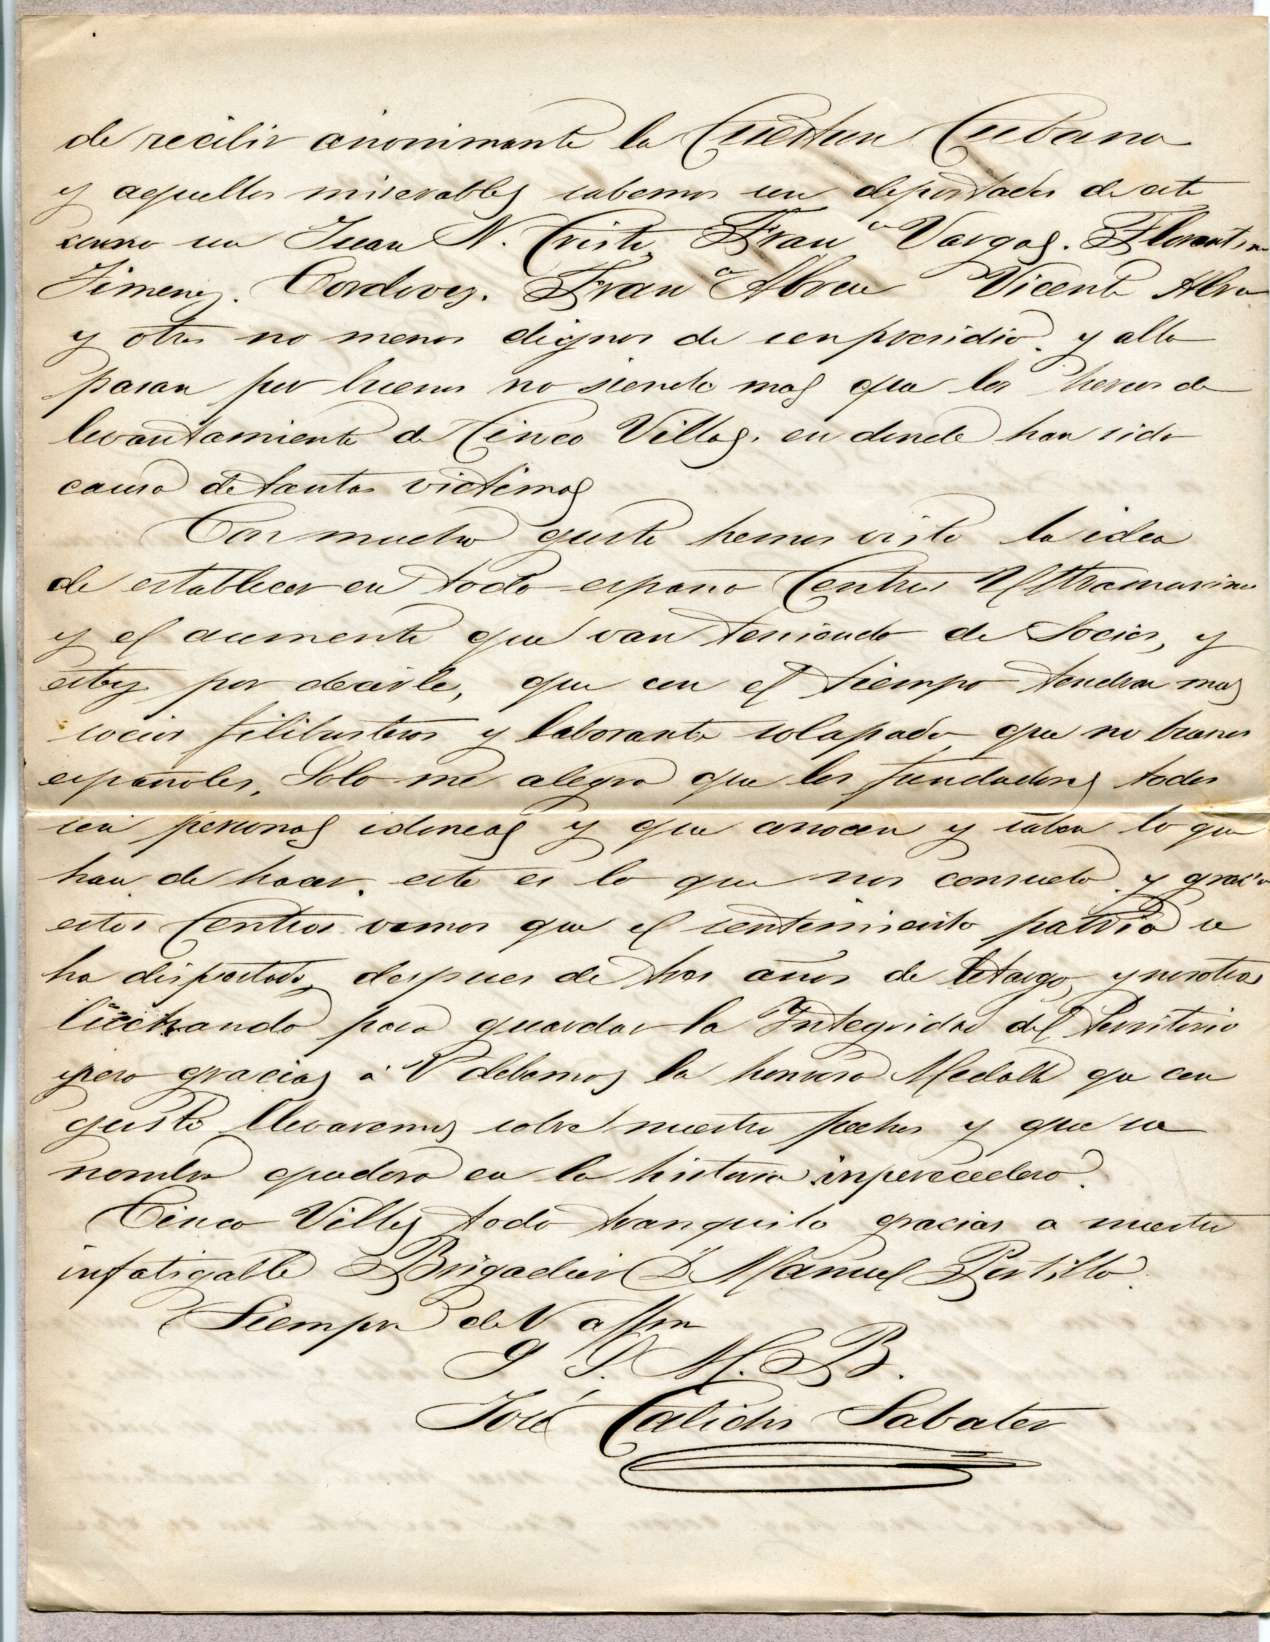 de recibir anonimante la Cuestion Cubana
y aquellos miserables sabemos son deportados de esta
como son Juan N. Cristo, Fran.co Vargas. Florentino
Jimenez. Cordovez. Fran.co Abreu Vicente Abreu
y otros no menos dignos de un presidio. y alla
pasan por buenos no siendo mas que los heroes de
levantamiento de Cinco Villas. en donde han sido
causa de tantas victimas
Con mucho gusto hemos visto la idea
de establecer en toda españa Centros Ultramarinos
y el aumento que van teniendo de Socios, y
estoy por decirle, que con el tiempo tendran mas
socios filibusteros y laborante solapado que no buenos
españoles. Solo me alegra que los fundadores todos
son personas idoneas y que conocen y saben lo que
han de hacer. esto es lo que nos consuela y gracias
estos Centros vemos que el sentimiento patrio se
ha dispertado, despues de tres años de letargo, y nosotros
luchando para guardar la Integridad del territorio
pero gracias á V debemos la honrosa Medalla que con
gusto llevaremos sobre nuestro pechos y que su
nombre quedara en la historia inperecedero.
Cinco Villas todo tranquilo gracias a nuestro
infatigable Brigadier D. Manuel Portillo.
Siempre de V affm
q S. M. B.
José Calichs Sabater